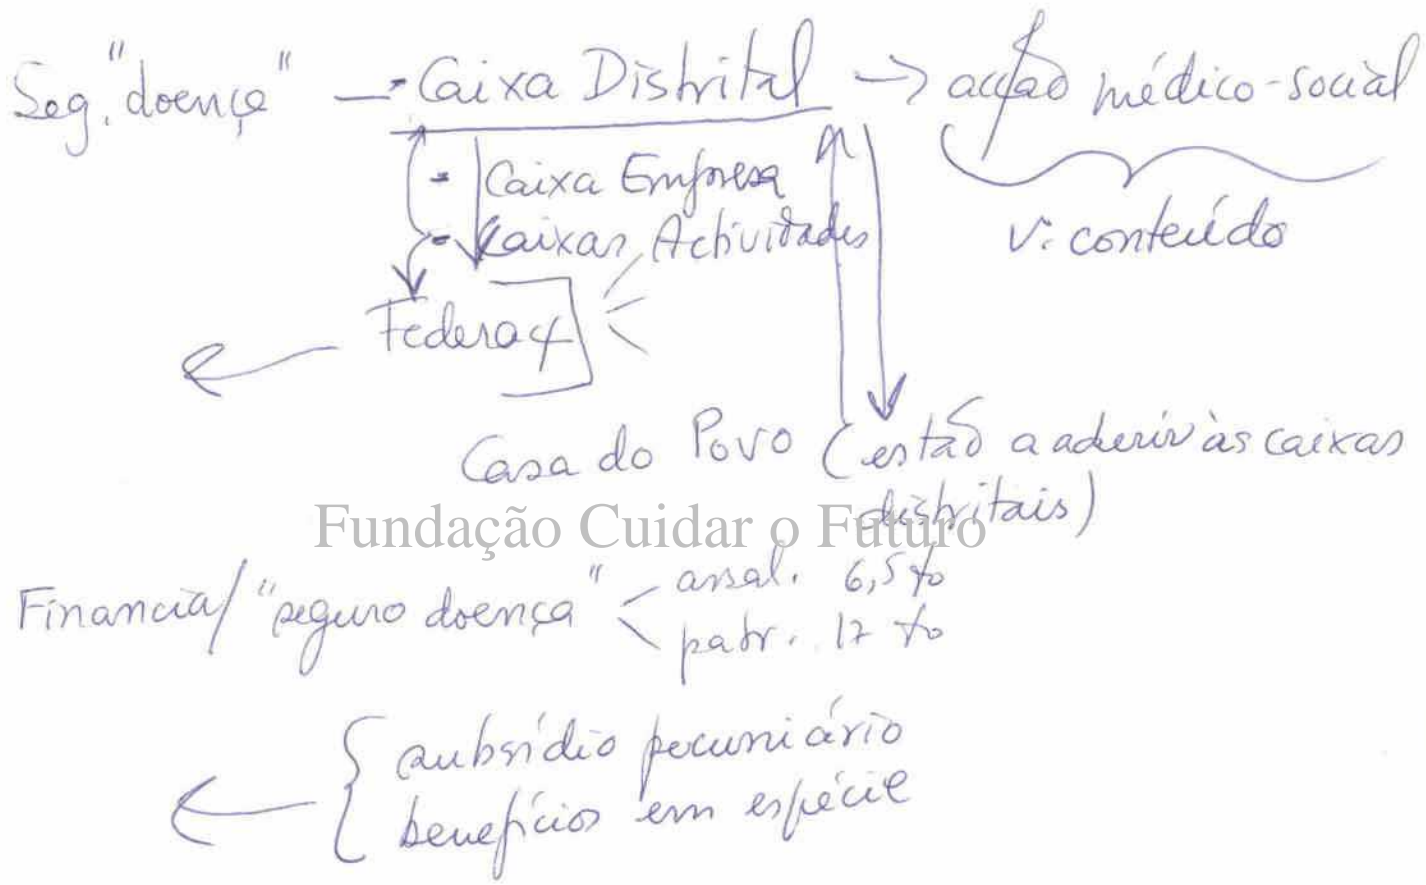 Seg. "doença" - Caixa Distrital → acção médico-social
- Caixa Empresa
- Caixas Actividades
v. conteúdo
Federaç
Casa do Povo (estão a aderir às caixas
distritais)
Fundação Cuidar o Futuro
Financia/ "seguro doença" assal. 6,5 %
patr. 17 %
subsídio pecuniário
benefícios em espécie